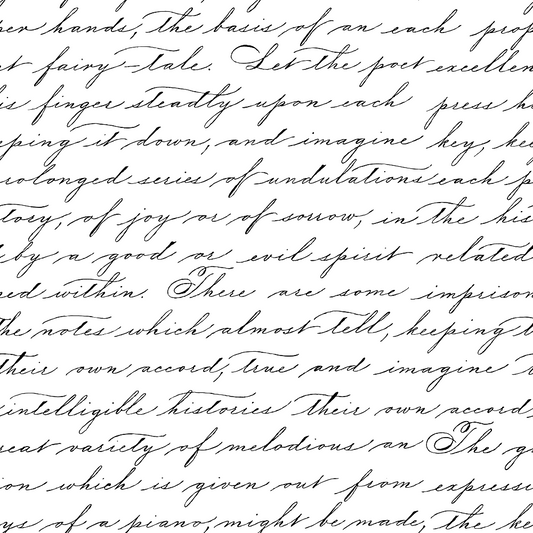 per hands, the basis of an each prop
et fairy-tale. Let the poet excellen
is finger steadty upon each press h
ping it down, and imagine key, kee
rolonged series of undulations each p
tory, of joy or of sorrow, in the his
by a good or evil spirit related
ped within. There are some imprison
he notes which almost tell, keeping t
their own accord, true and imagine
intelligible histories their own accord,
reat variety of melodious an The g
ion which is given out from expressi
ys of a piano, might be made, the ke